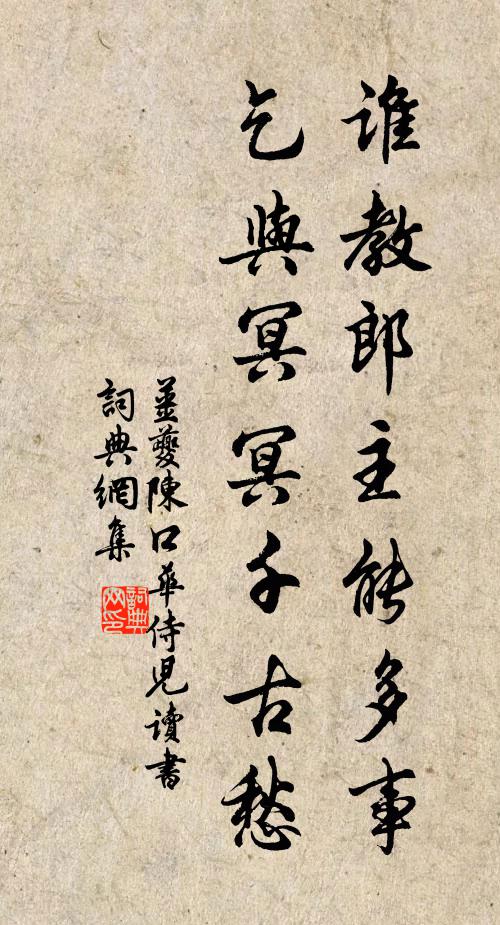 谁教郎主能多事
乞與冥冥千古愁
姜夔陳口華侍兒讀書
詞典網集
詞典网印